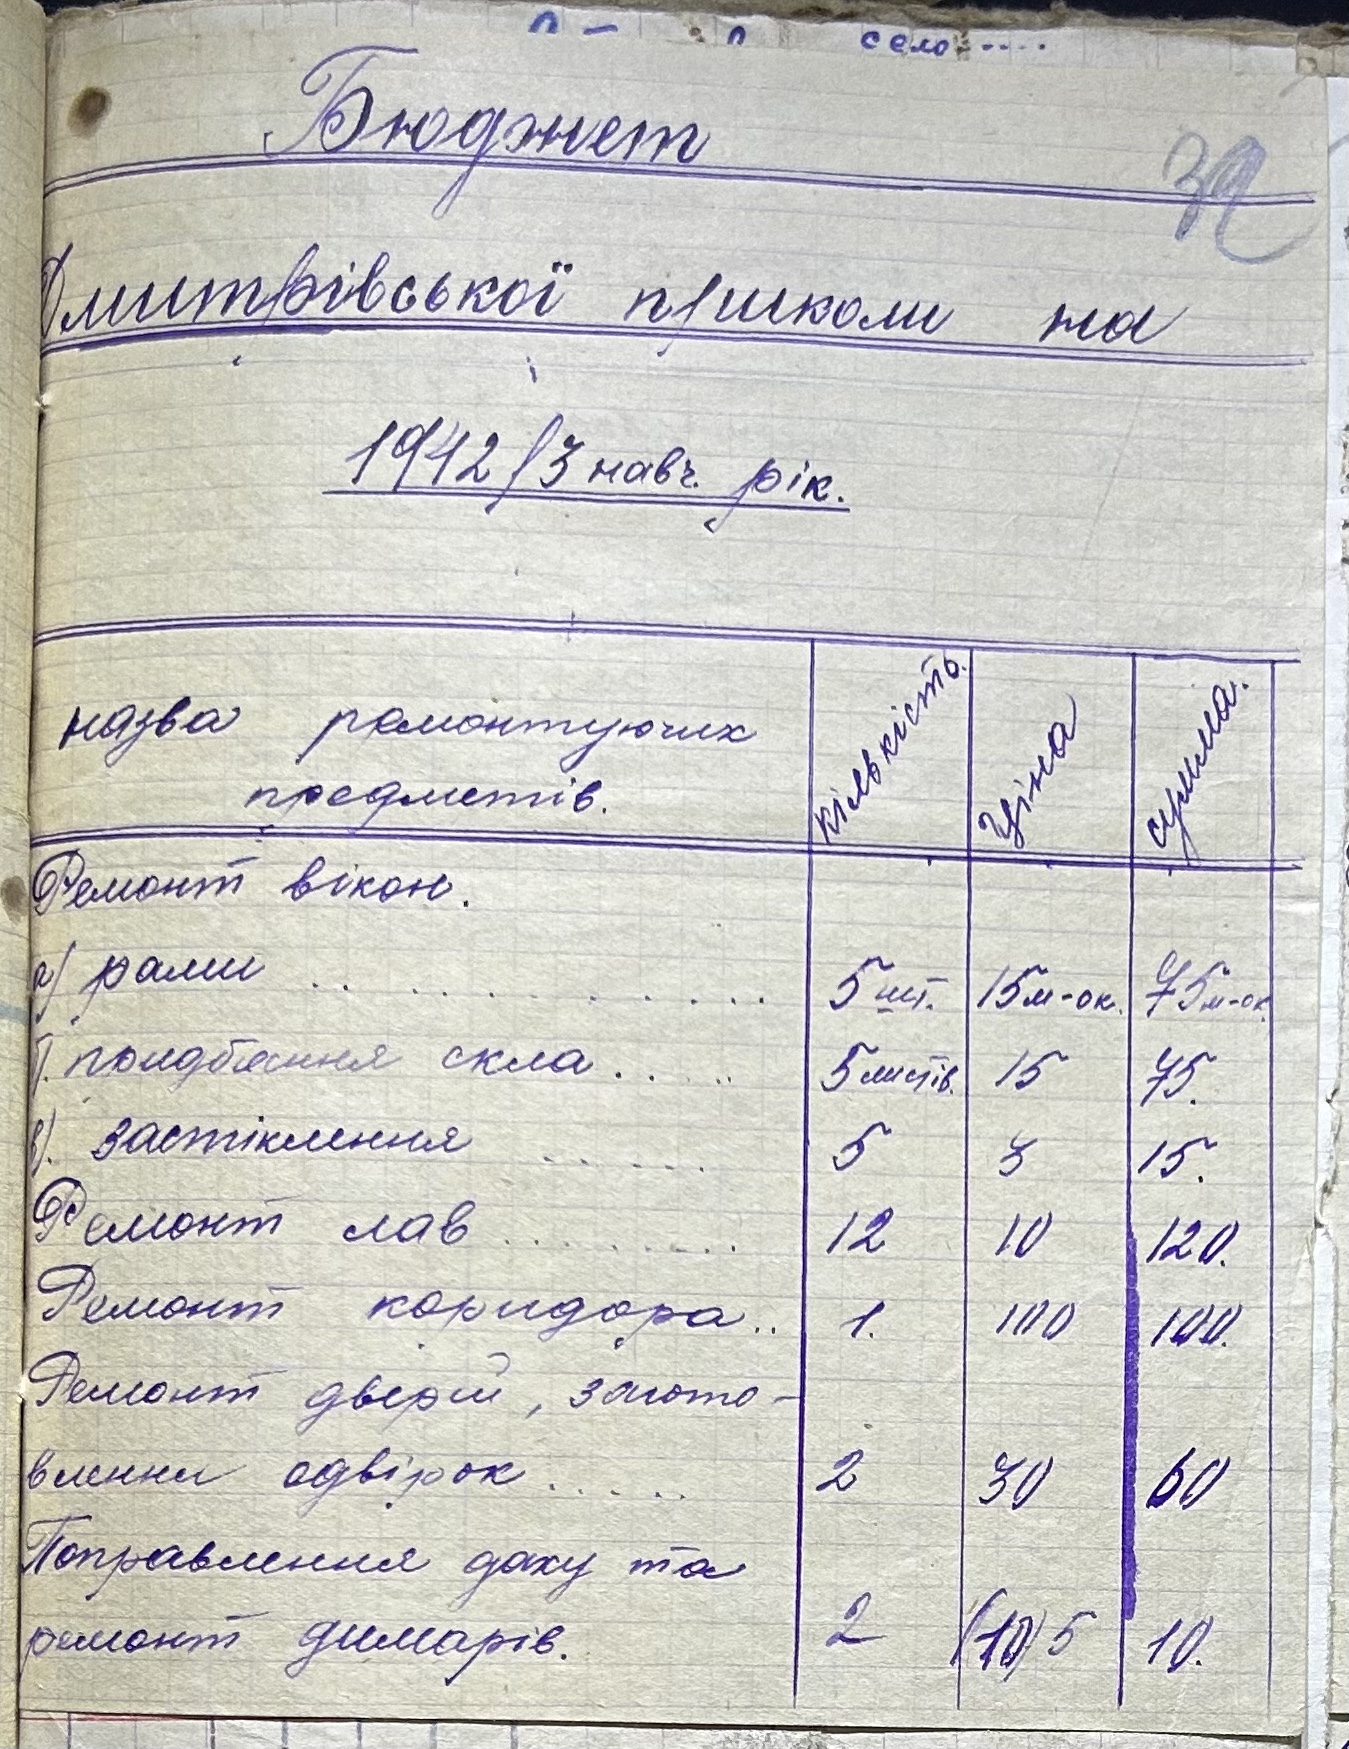 село....
Бюджет
32
Дмитрівської п/школи на
1942/3 навч. рік.
назва ремонтуючих предметів. кількість. ціна сумма.
Ремонт вікон.
а) рами .............. 5 шт. 15 м-ок. 75 м-ок.
б). придбання скла..... 5 листів. 15 75.
в). застіклення ...... 5 3 15.
Ремонт лав......... 12 10 120.
Ремонт коридора.. 1. 100 100.
Ремонт дверій, загото-
влення одвірок...... 2 30 60
Поправлення даху та
ремонт димарів. 2 (10) 5 10.